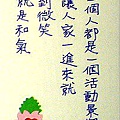 個人都是一個活動景
讓人家一進來就
到微笑
就是和氣